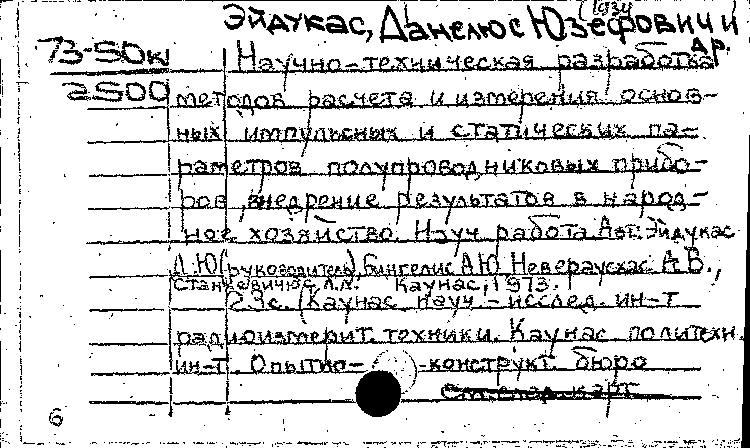 (1934
Эйдукас, Данелюс Юзефович и др.
73-50к
2500
Научно-техническая разработка
методов расчета и измерения основ-
ных импульсных и статических па-
раметров полупроводниковых прибо-
ров, внедрение результатов в народ-
ное хозяйство. Науч. работа. Авт.: Эйдукас
Д.Ю. (руководитель), Бингелис А.Ю. Невераускас А.В.,
Станкевичюс А.Л. Каунас, 1973.
23с. (Каунас. науч.-исслед. ин-т
радиоизмерит. техники. Каунас. политехн.
ин-т. Опытно-конструкт. бюро
см. след. карт.
6